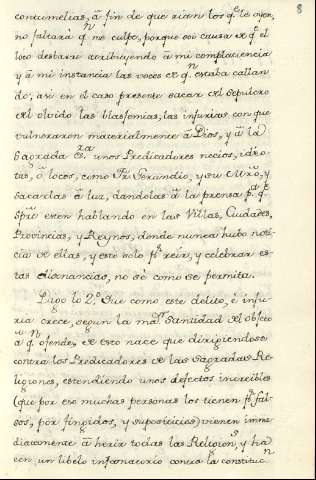 8
contumelias, â fin de que rian los q.e lo oyen,
no faltará q.n me culpe, porque soi causa de q.e el
loco desbarre atribuyendo â mi complacencia
y â mi instancia las voces de q.n estaba callan
do; asi en el caso presente sacar del sepulcro
del olvido las blasfemias, las injurias con que
vulneraron materialmente â Dios, y â la
Sagrada Es.ra unos Predicadores necios, idio-
tas, ô locos, como Fr. Gerundio, y su Mrô, y
sacarlas â luz, dandolas â la prensa p.a q.e
spre esten hablando en las Villas, Ciudades,
Provincias, y Reynos, donde nunca hubo noti-
cia de ellas, y esto solo p.a reir, y celebrar es-
tas disonancias, no sé como se permita.
Digo lo 2.o Que como este delito, ê inju-
ria crece, segun la ma.r Santidad del objeto
â q.n ofende, de esto nace que dirigiendose
contra los Predicadores de las Sagradas Re-
ligiones, estendiendo unos defectos increibles
(que por eso muchas personas los tienen p.r fal-
sos, por fingidos, y suposicios) vienen inme
diatamente â herir todas las Religion.s, y ha
cen un libelo infamatorio contra la constituc.n